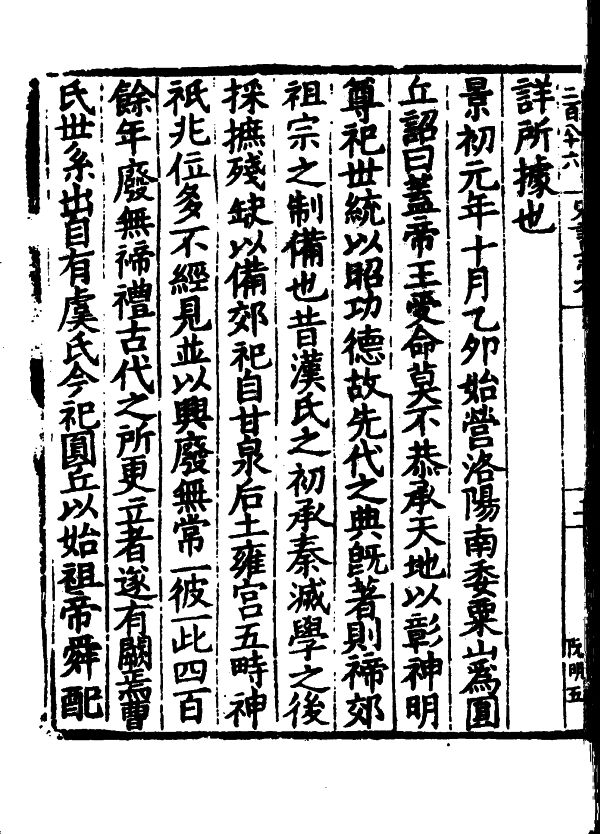 二百八十六
阮明五
詳所據也
景初元年十月乙卯始營洛陽南委粟山爲圓
丘詔曰蓋帝王受命莫不恭承天地以彰神明
尊祀世統以昭功德故先代之典旣著則禘郊
祖宗之制備也昔漢氏之初承秦滅學之後
採摭殘缺以備郊祀自甘泉后土雍宫五畤神
祇兆位多不經見並以興廢無常一彼一此四百
餘年廢無禘禮古代之所更立者遂有闕焉曹
氏世系出自有虞氏今祀圓丘以始祖帝舜配